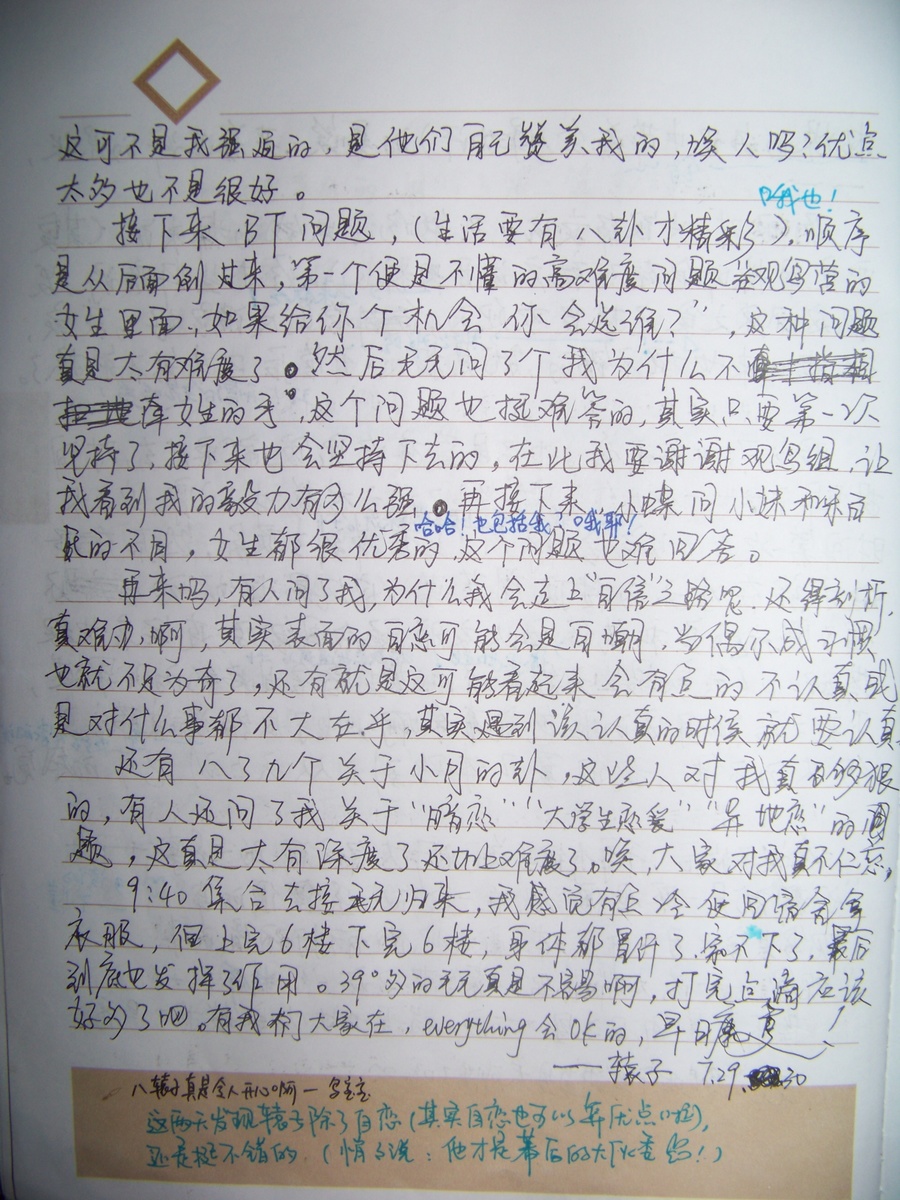 这可不是我强迫的，是他们自己赞美我的，唉人吗？优点
太多也不是很好。
哦也！
接下来BT问题，（生活要有八卦才精彩），顺序
是从后面倒过来，第一个便是不懂的高难度问题"若观鸟营的
女生里面，如果给你个机会你会选谁？"，这种问题
真是太有难度了。然后毛毛问了个我为什么不
牵女生的手，这个问题也挺难答的，其实只要第一次
坚持了，接下来也会坚持下去的，在此我要谢谢观鸟组，让
我看到我的毅力有多么强。再接下来，小蝶问小沫和乐百
哈哈！也包括我，哦耶！
氏的不同，女生都很优秀的，这个问题也难回答。
再来吗，有人问了我，为什么我会走上"自信"之路呢，还得剖析，
真难办啊，其实表面的自恋可能会是自嘲，当偶尔成习惯
也就不足为奇了，还有就是这可能看起来会有点的不认真或
是对什么事都不大在乎，其实遇到该认真的时侯就要认真
还有八了九个关于小月的卦，这些人对我真够狠
的，有人还问了我关于"暗恋""大学生恋爱""异地恋"的问
题，这真是太有深度了还加上难度了。唉，大家对我真不仁慈，
9:40集合去接毛毛归来，我感觉有点冷便回宿舍拿
衣服，但上完6楼下完6楼，身体都冒汗了，最后
到底也发挥了作用。39°多的毛毛真是不容易啊，打完点滴应该
好多了吧。有我们大家在，everything会OK的，早日康复！
——辕子 7.29 30
八辕子真是令人开心啊—
这两天发现辕子除了自恋（其实自恋也可以算优点啦），
还是挺不错的。（悄悄说：他才是幕后的大BOSS！）